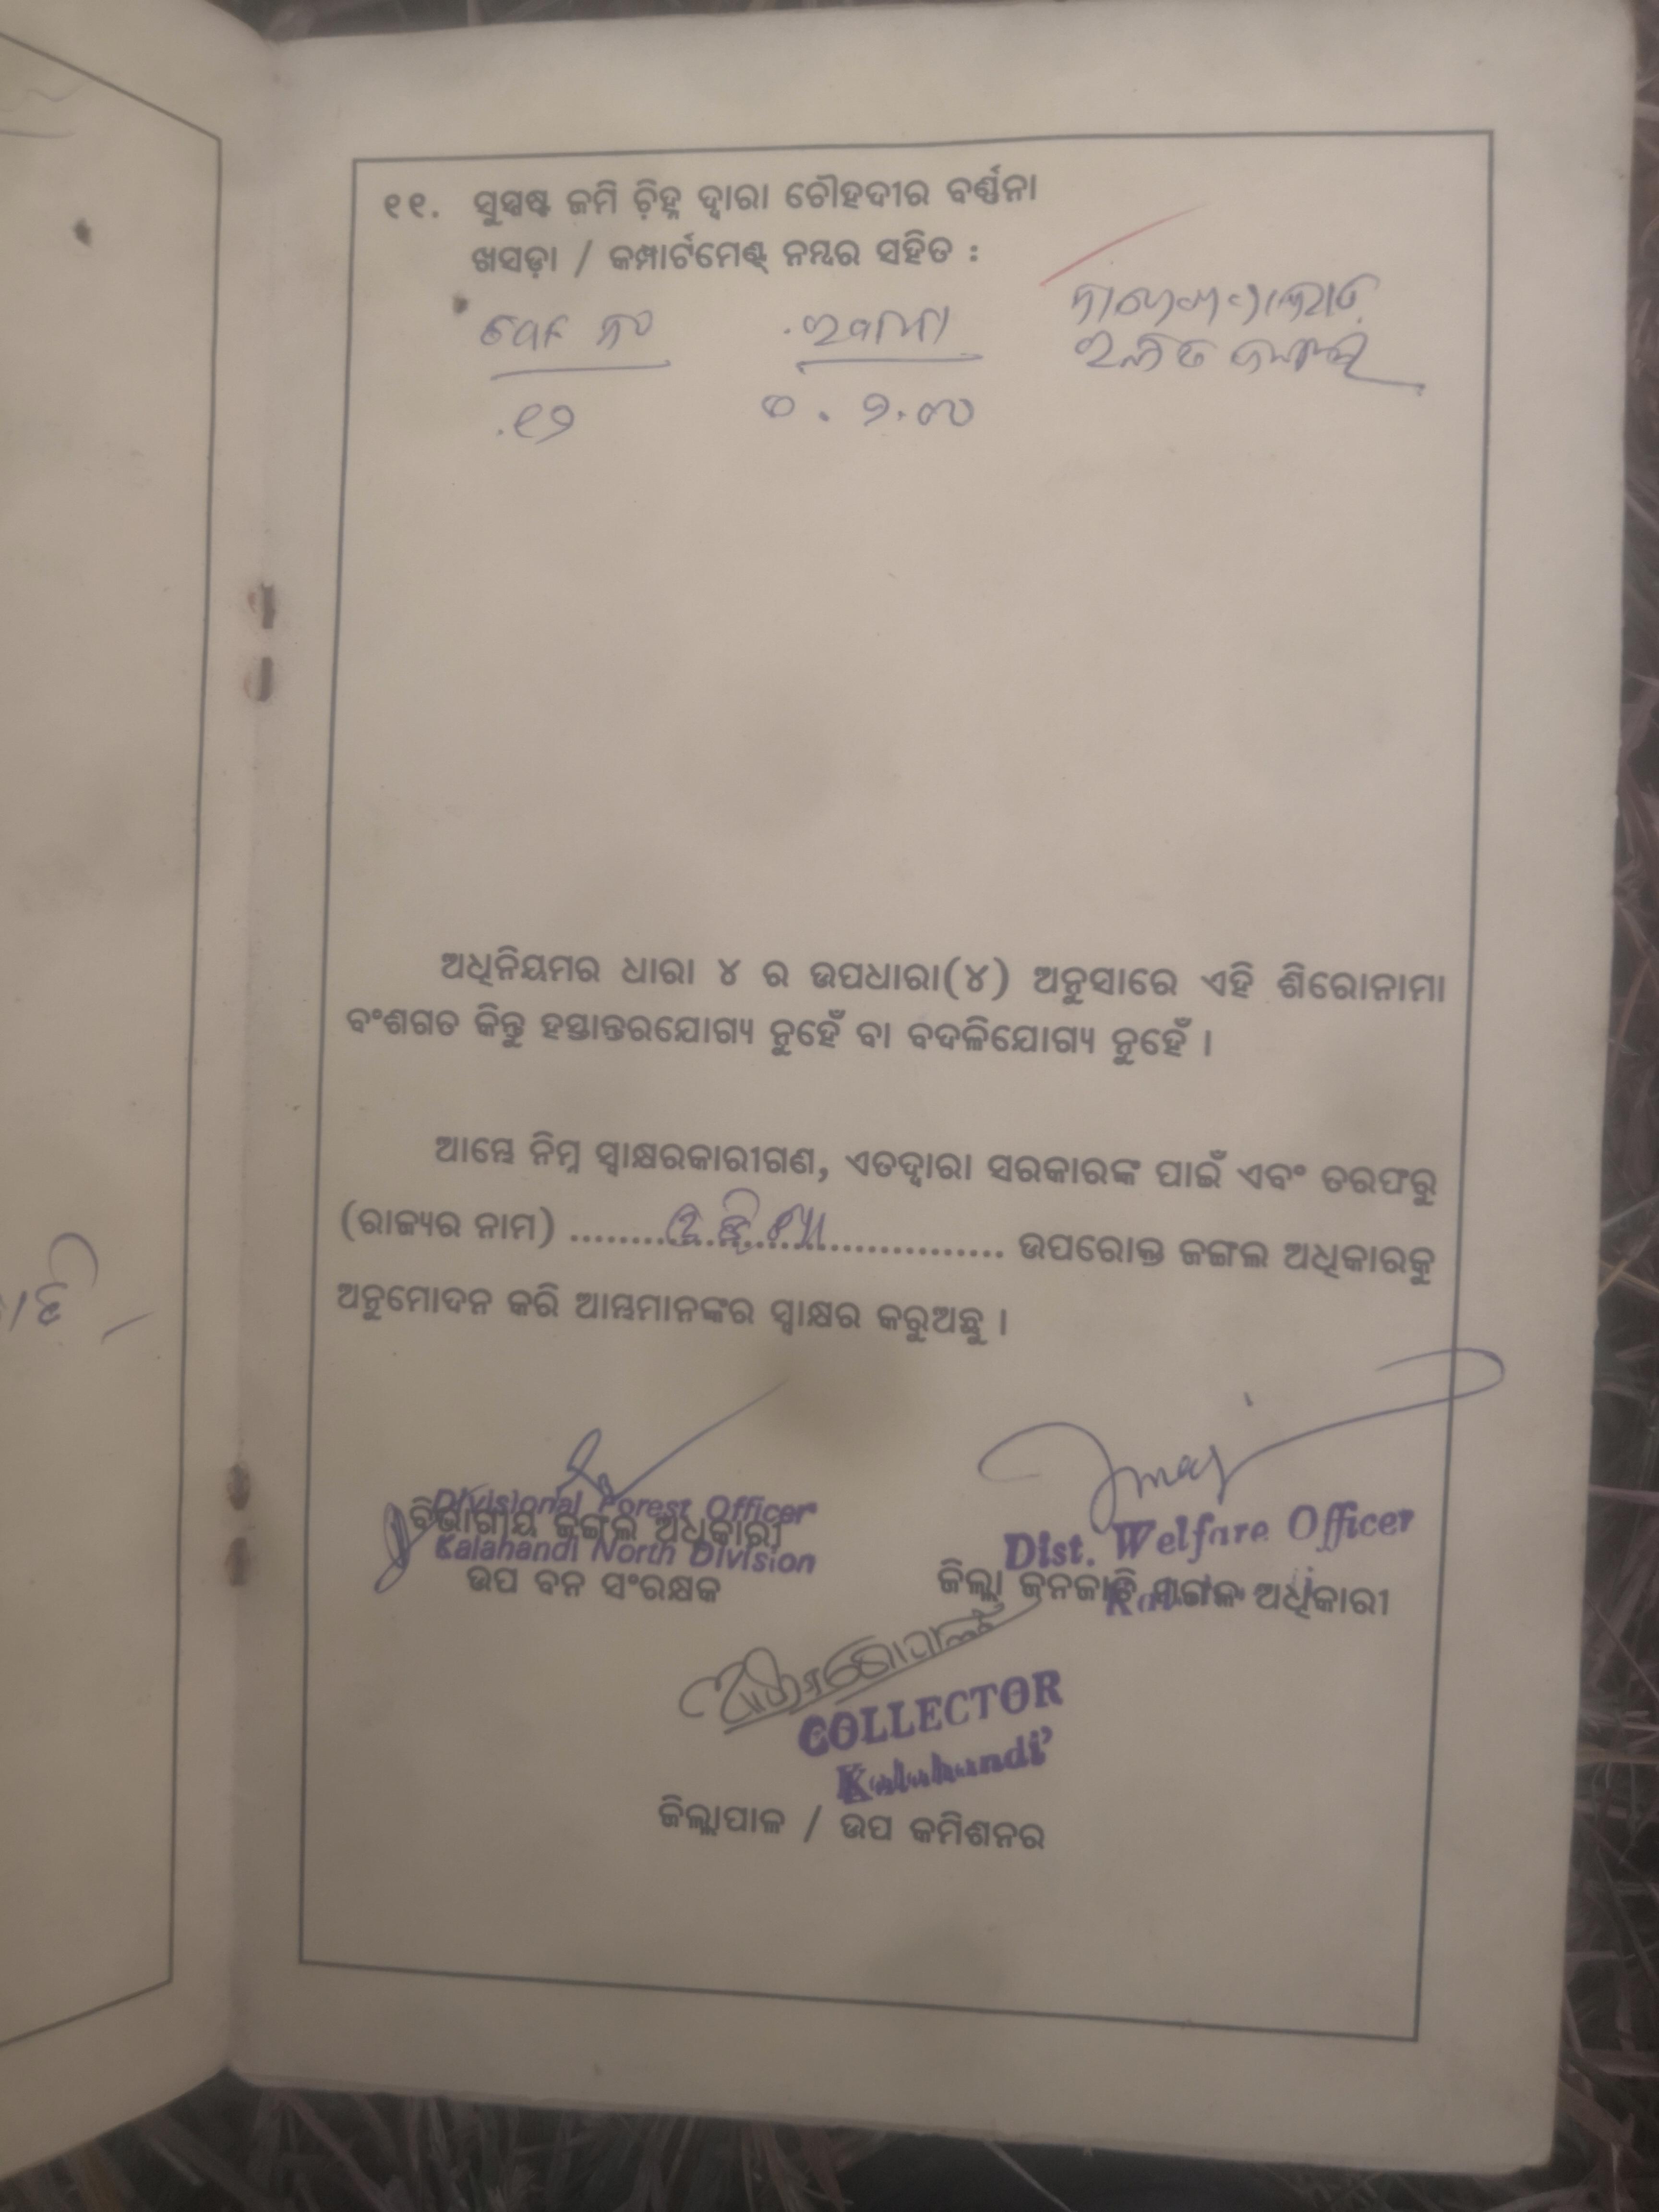 ୧୧. ସୁସ୍ପଷ୍ଟ ଜମି ଚି଼ହ୍ନ ଦ୍ୱାରା ଚୌହଦୀର ବର୍ଣ୍ଣନା
ଖସଡ଼ା / କମ୍ପାର୍ଟମେଣ୍ଟ୍ ନମ୍ବର ସହିତ :
.୧୨
ଅଧିନିୟମର ଧାରା ୪ ର ଉପଧାରା(୪) ଅନୁସାରେ ଏହି ଶିରୋନାମା
ବଂଶଗତ କିନ୍ତୁ ହସ୍ତାନ୍ତରଯୋଗ୍ୟ ନୁହେଁ ବା ବଦଳିଯୋଗ୍ୟ ନୁହେଁ ।
ଆମ୍ଭେ ନିମ୍ନ ସ୍ୱାକ୍ଷରକାରୀଗଣ, ଏତଦ୍ୱାରା ସରକାରଙ୍କ ପାଇଁ ଏବଂ ତରଫରୁ
(ରାଜ୍ୟର ନାମ) ............ ଓଡ଼ିଶା ............ ଉପରୋକ୍ତ ଜଙ୍ଗଲ ଅଧିକାରକୁ
ଅନୁମୋଦନ କରି ଆମ୍ଭମାନଙ୍କର ସ୍ୱାକ୍ଷର କରୁଅଛୁ ।
Divisional Forest Officer
ବିଭାଗୀୟ ଜଙ୍ଗଲ ଅଧିକାରୀ
Kalahandi North Division
ଉପ ବନ ସଂରକ୍ଷକ
Dist. Welfare Officer
ଜିଲ୍ଲା ଜନଜାତି ମଙ୍ଗଳ ଅଧିକାରୀ
COLLECTOR
Kalahandi
ଜିଲ୍ଲାପାଳ / ଉପ କମିଶନର